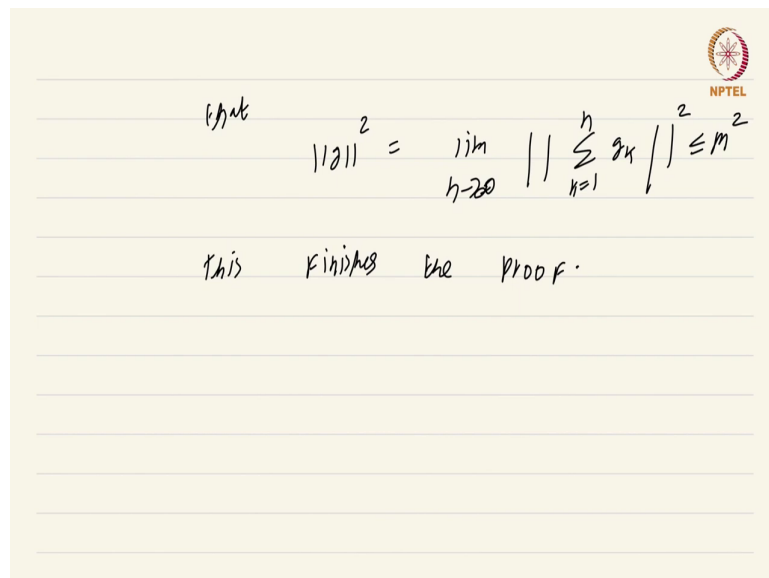 NPTEL
that
||g||² = lim n→∞ || Σ_{k=1}^{n} g_k ||² ≤ m²
this finishes the proof.